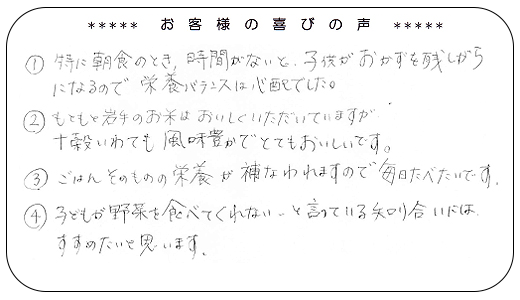 ***** お客様の喜びの声 *****
① 特に朝食のとき、時間がないと、子供がおかずを残しがち
になるので 栄養バランスは心配でした。
② もともと岩手のお米はおいしくいただいていますが
十穀いわても 風味豊かでとてもおいしいです。
③ ごはんそのものの栄養が補なわれますので毎日たべたいです。
④ 子どもが野菜を食べてくれない、と言っている知り合いには
すすめたいと思います。